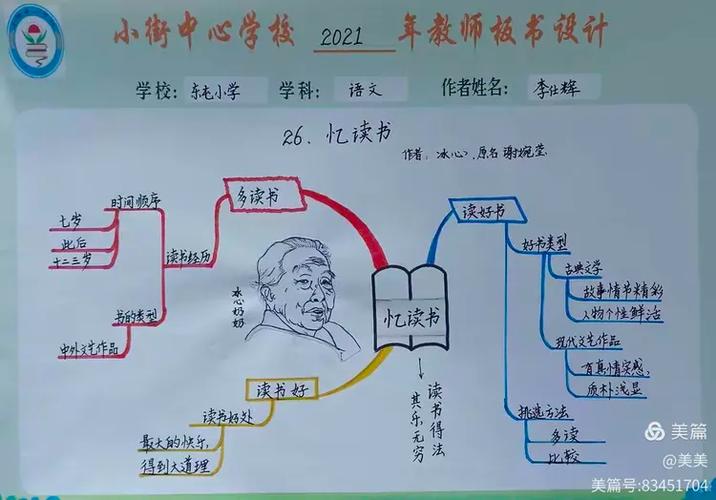 小街中心学校 2021 年教师板书设计
学校: 东屯小学 学科: 语文 作者姓名: 李仕辉
26. 忆读书
作者: 冰心、原名谢婉莹
多读书
读书经历
时间顺序
七岁
此后
十二三岁
书的类型
中外文艺作品
冰心奶奶
忆读书
读书得法
其乐无穷
读书好
读书好处
最大的快乐,
得到大道理
读好书
好书类型
古典文学
故事情节精彩
人物个性鲜活
现代文艺作品
有真情实感,
质朴浅显
挑选方法
多读
比较
美篇
@美美
美篇号:83451704